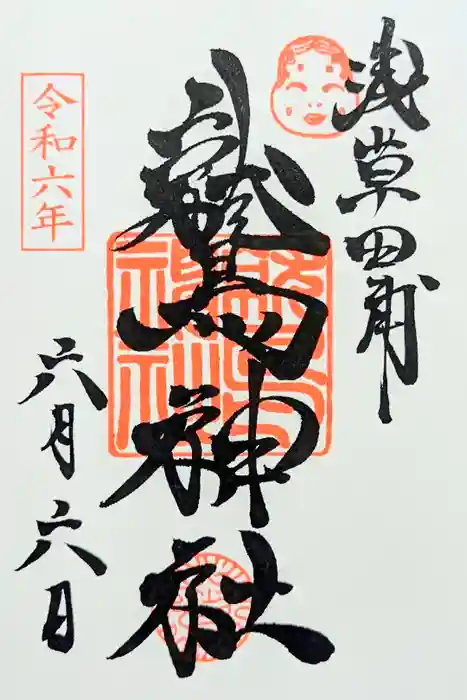 浅草田甫
鷲神社
令和六年
六月六日
鷲神社